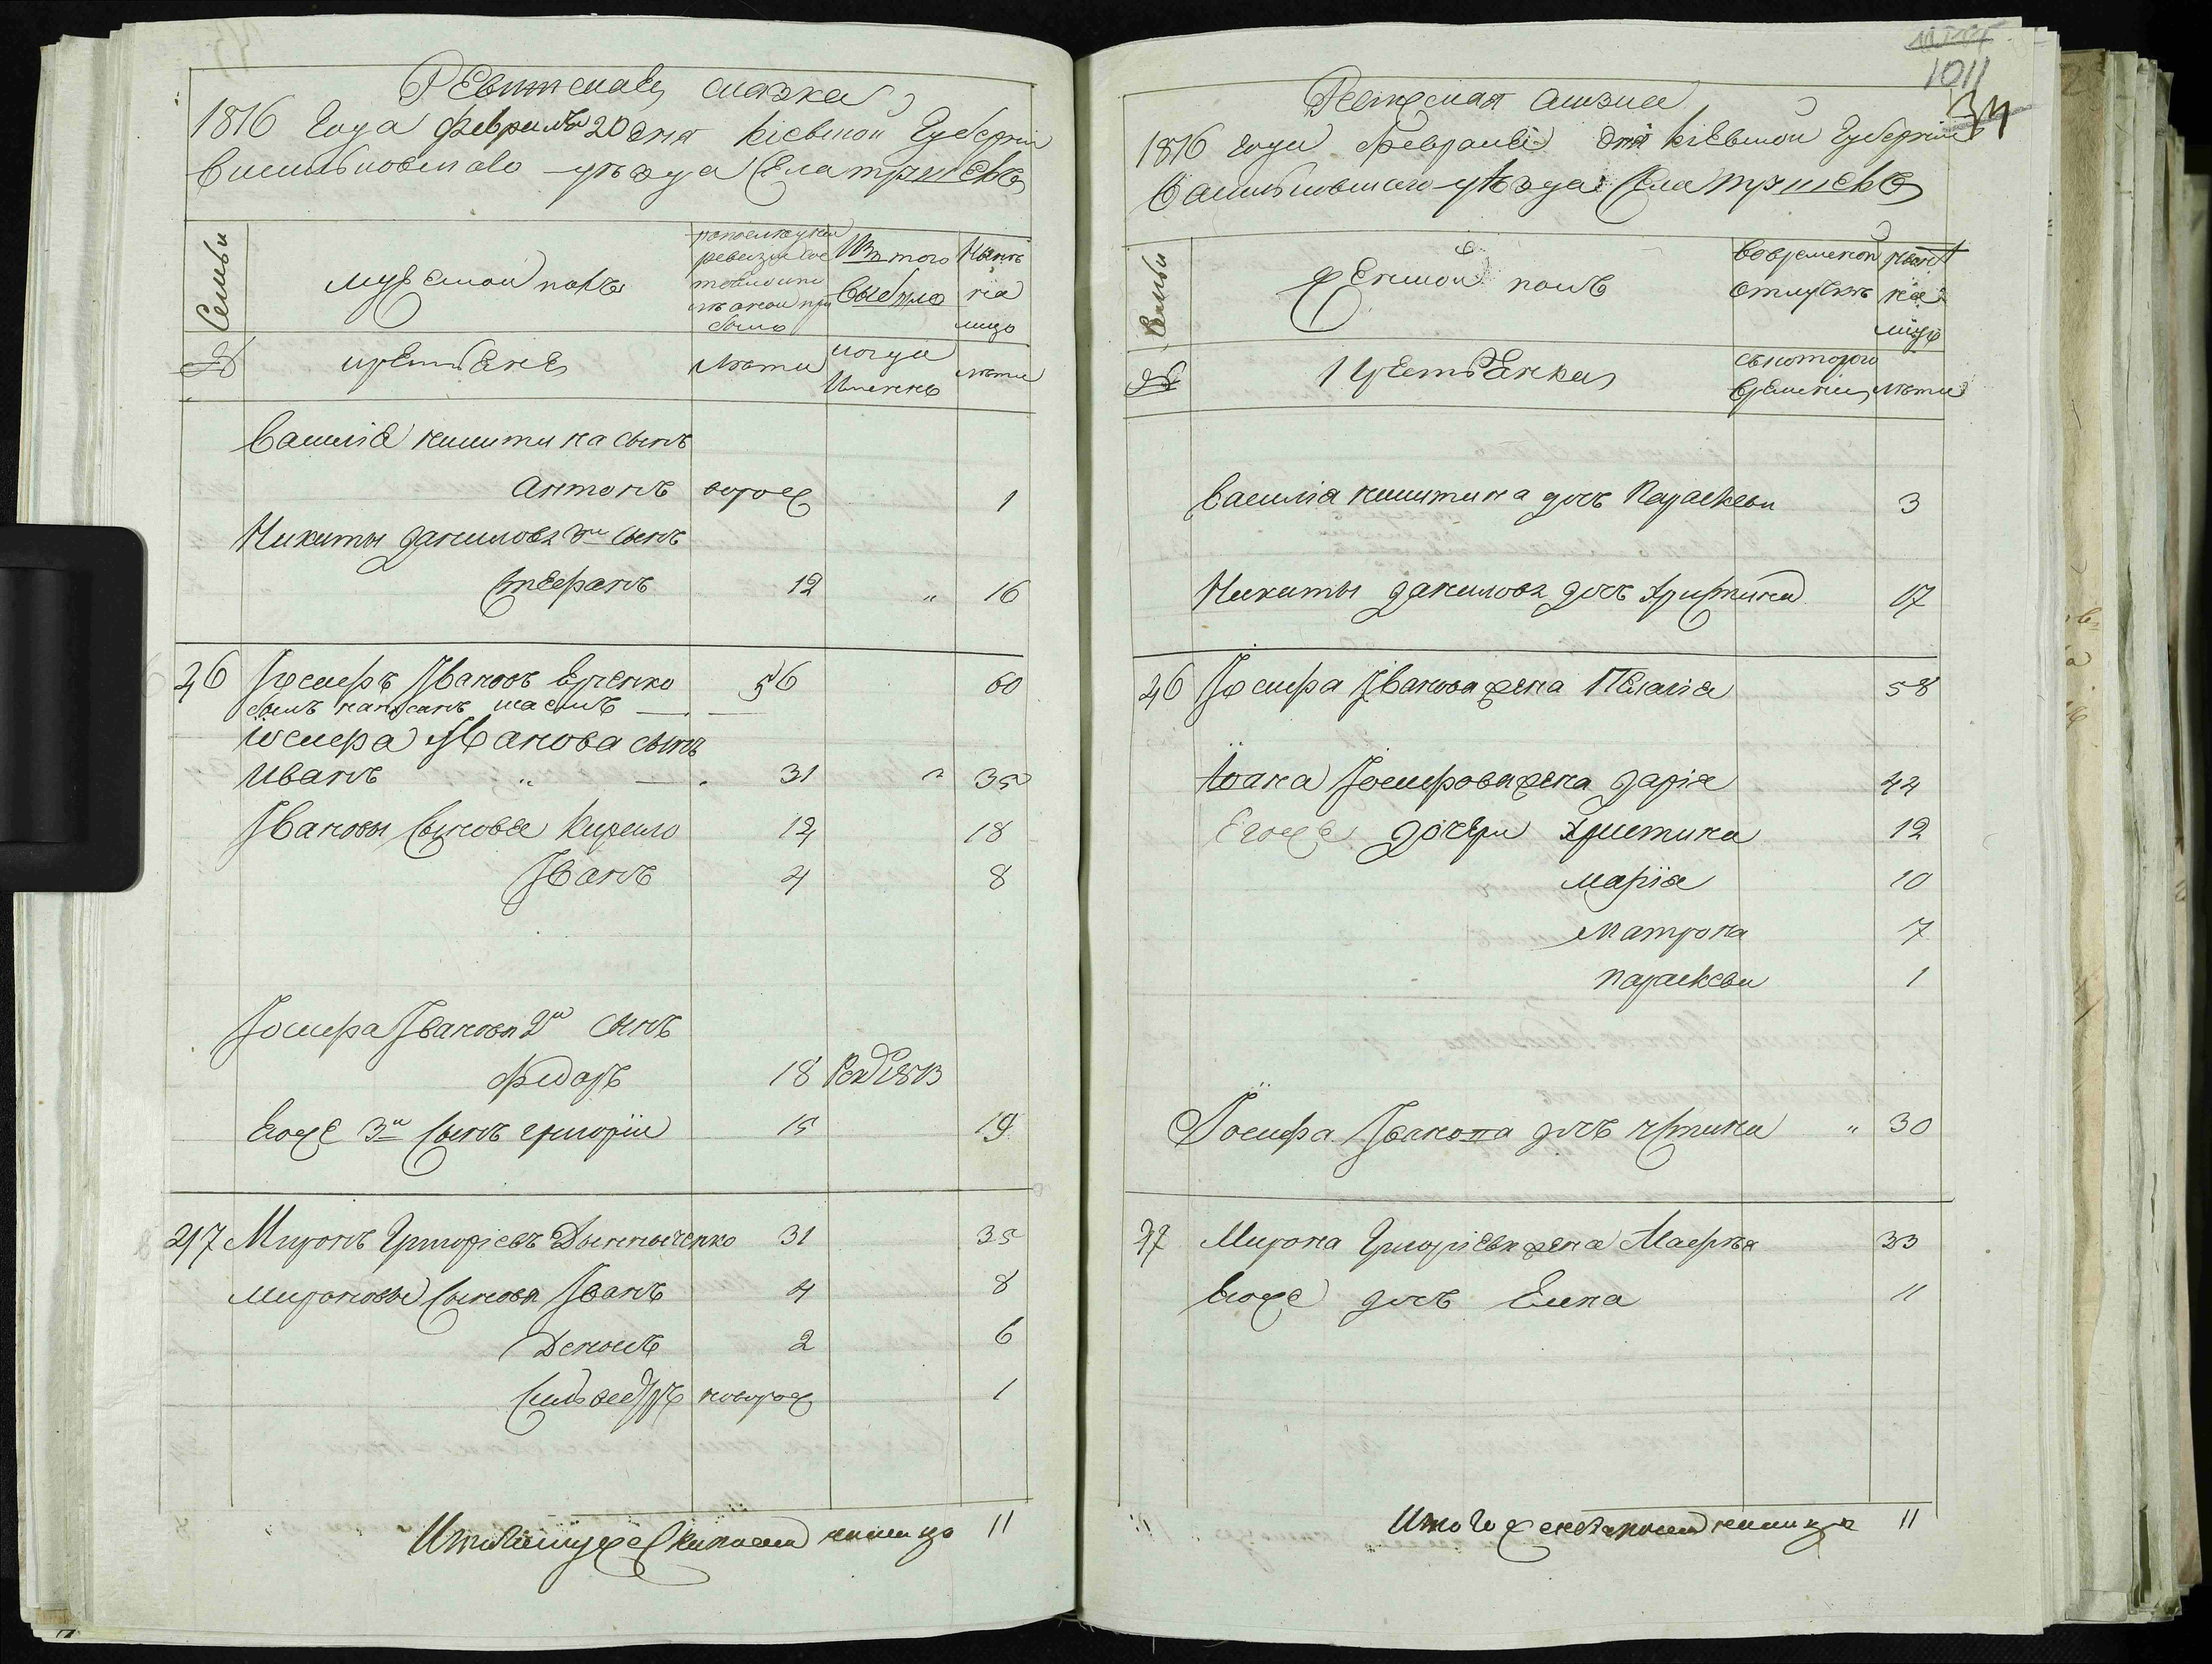 Ревижская сказка
1816 года февраля 20 дня Кіевской Губерніи
Васильковскаго уѣзда Села триленъ
Семьи
мужеской полъ
по последней ревизіи состояло и послѣ оной при было
Изъ того выбыло
Нынѣ на лицо
№
крестьяне
лѣта
когда Именно
лѣта
Василія никитина сынъ
антонъ новорож 1
Никиты данилова 3й сынъ
Стефанъ 12 „ 16
26 Іосифъ Івановъ 56 60
Іосифа Іванова сынъ
Иванъ „ 31 „ 35
Івановы Сыновья Кирило 14 18
Іванъ 4 8
Іосифа Іванова 2й сынъ
Федоръ 18 Рек 1813
Егоже 3й Сынъ григорій 15 19
27 Миронъ Григоріевъ 31 35
мироновы Сыновья Іванъ 4 8
Денисъ 2 6
Сильвестръ новорож 1
Итого мужеска на лицо 11
1011
34
Ревижская сказка
1816 года Февраля дня Кіевской Губерніи
Васильковскаго уѣзда Села
Семьи
Женской полъ
Во временной отлучкѣ
Нынѣ на лицо
№
Крестьянка
съ котораго времени
лѣта
Василія никитина дочь Параскева 3
Никиты данилова дочь Христина 17
26 Іосифа Іванова жена Пелагія 58
Іоана Іосифова жена дарія 44
Егоже дочери Христина 12
марія 10
матрона 7
параскева 1
Іосифа Іванова дочь христина „ 30
27 Мирона Григоріева жена Марфа 33
Егоже дочь Елена 11
Итого женска на лицо 11